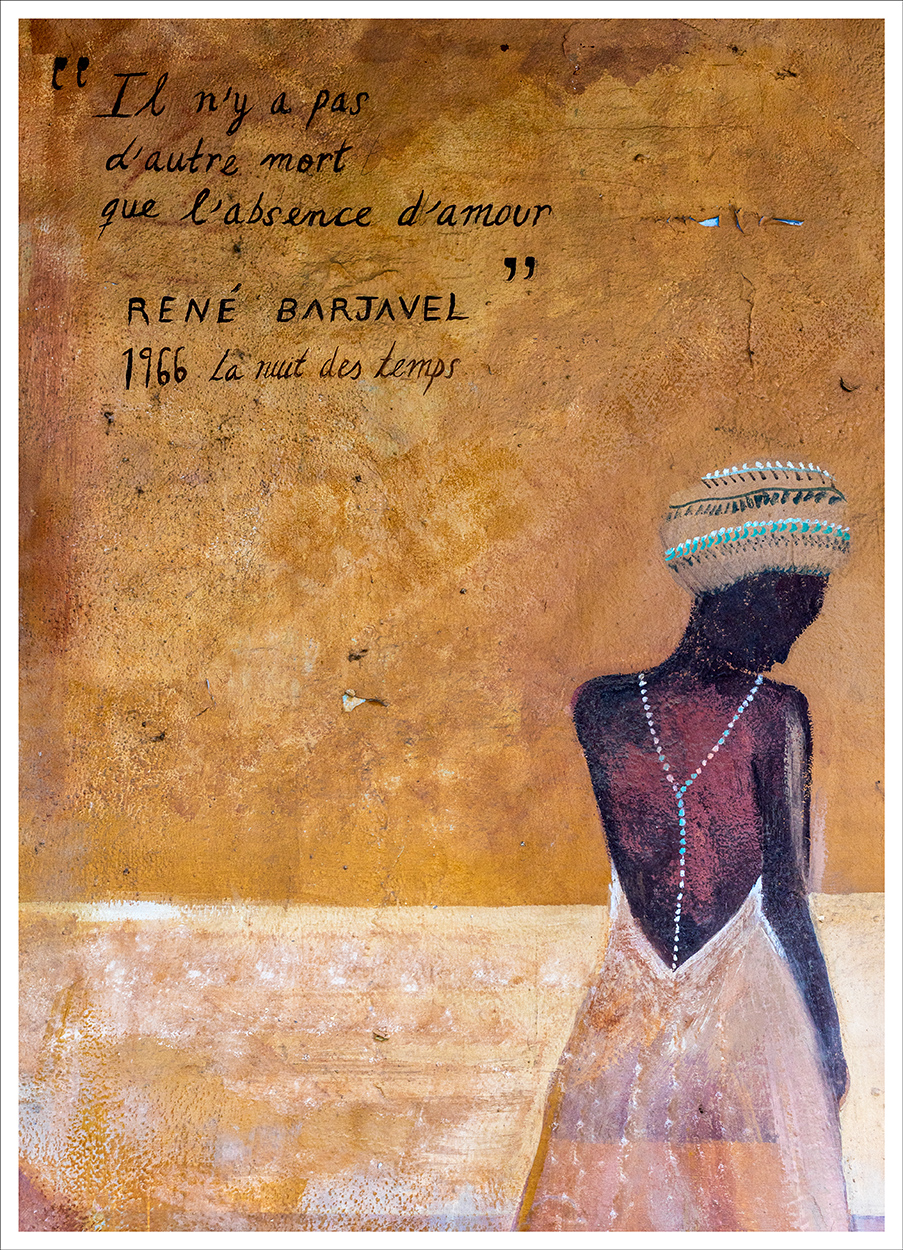 " Il n'y a pas
d'autre mort
que l'absence d'amour
"
RENÉ BARJAVEL
1966 La nuit des temps